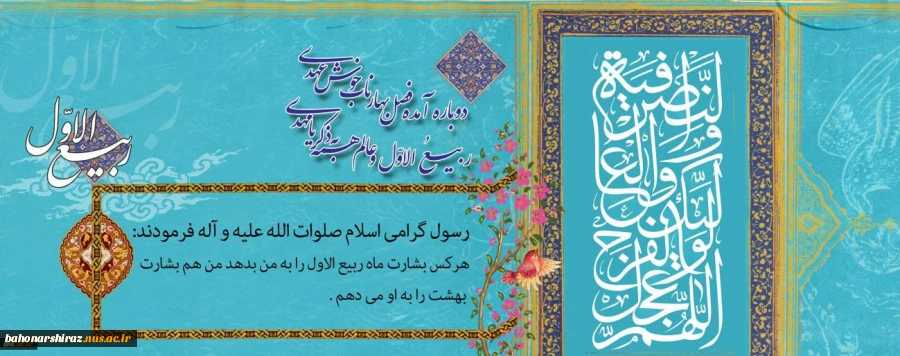 دوباره آمده فصل بهار ناب خوش عهدی
ربیعُ الاوّل و عالم همه به ذکر یا مهدی
ربیع الاوّل
رسول گرامی اسلام صلوات الله علیه و آله فرمودند:
هرکس بشارت ماه ربیع الاول را به من بدهد من هم بشارت
بهشت را به او می دهم .
اللهم عجل
لولیک الفرج
والعافیة
والنصر
bahonarshiraz.nus.ac.ir